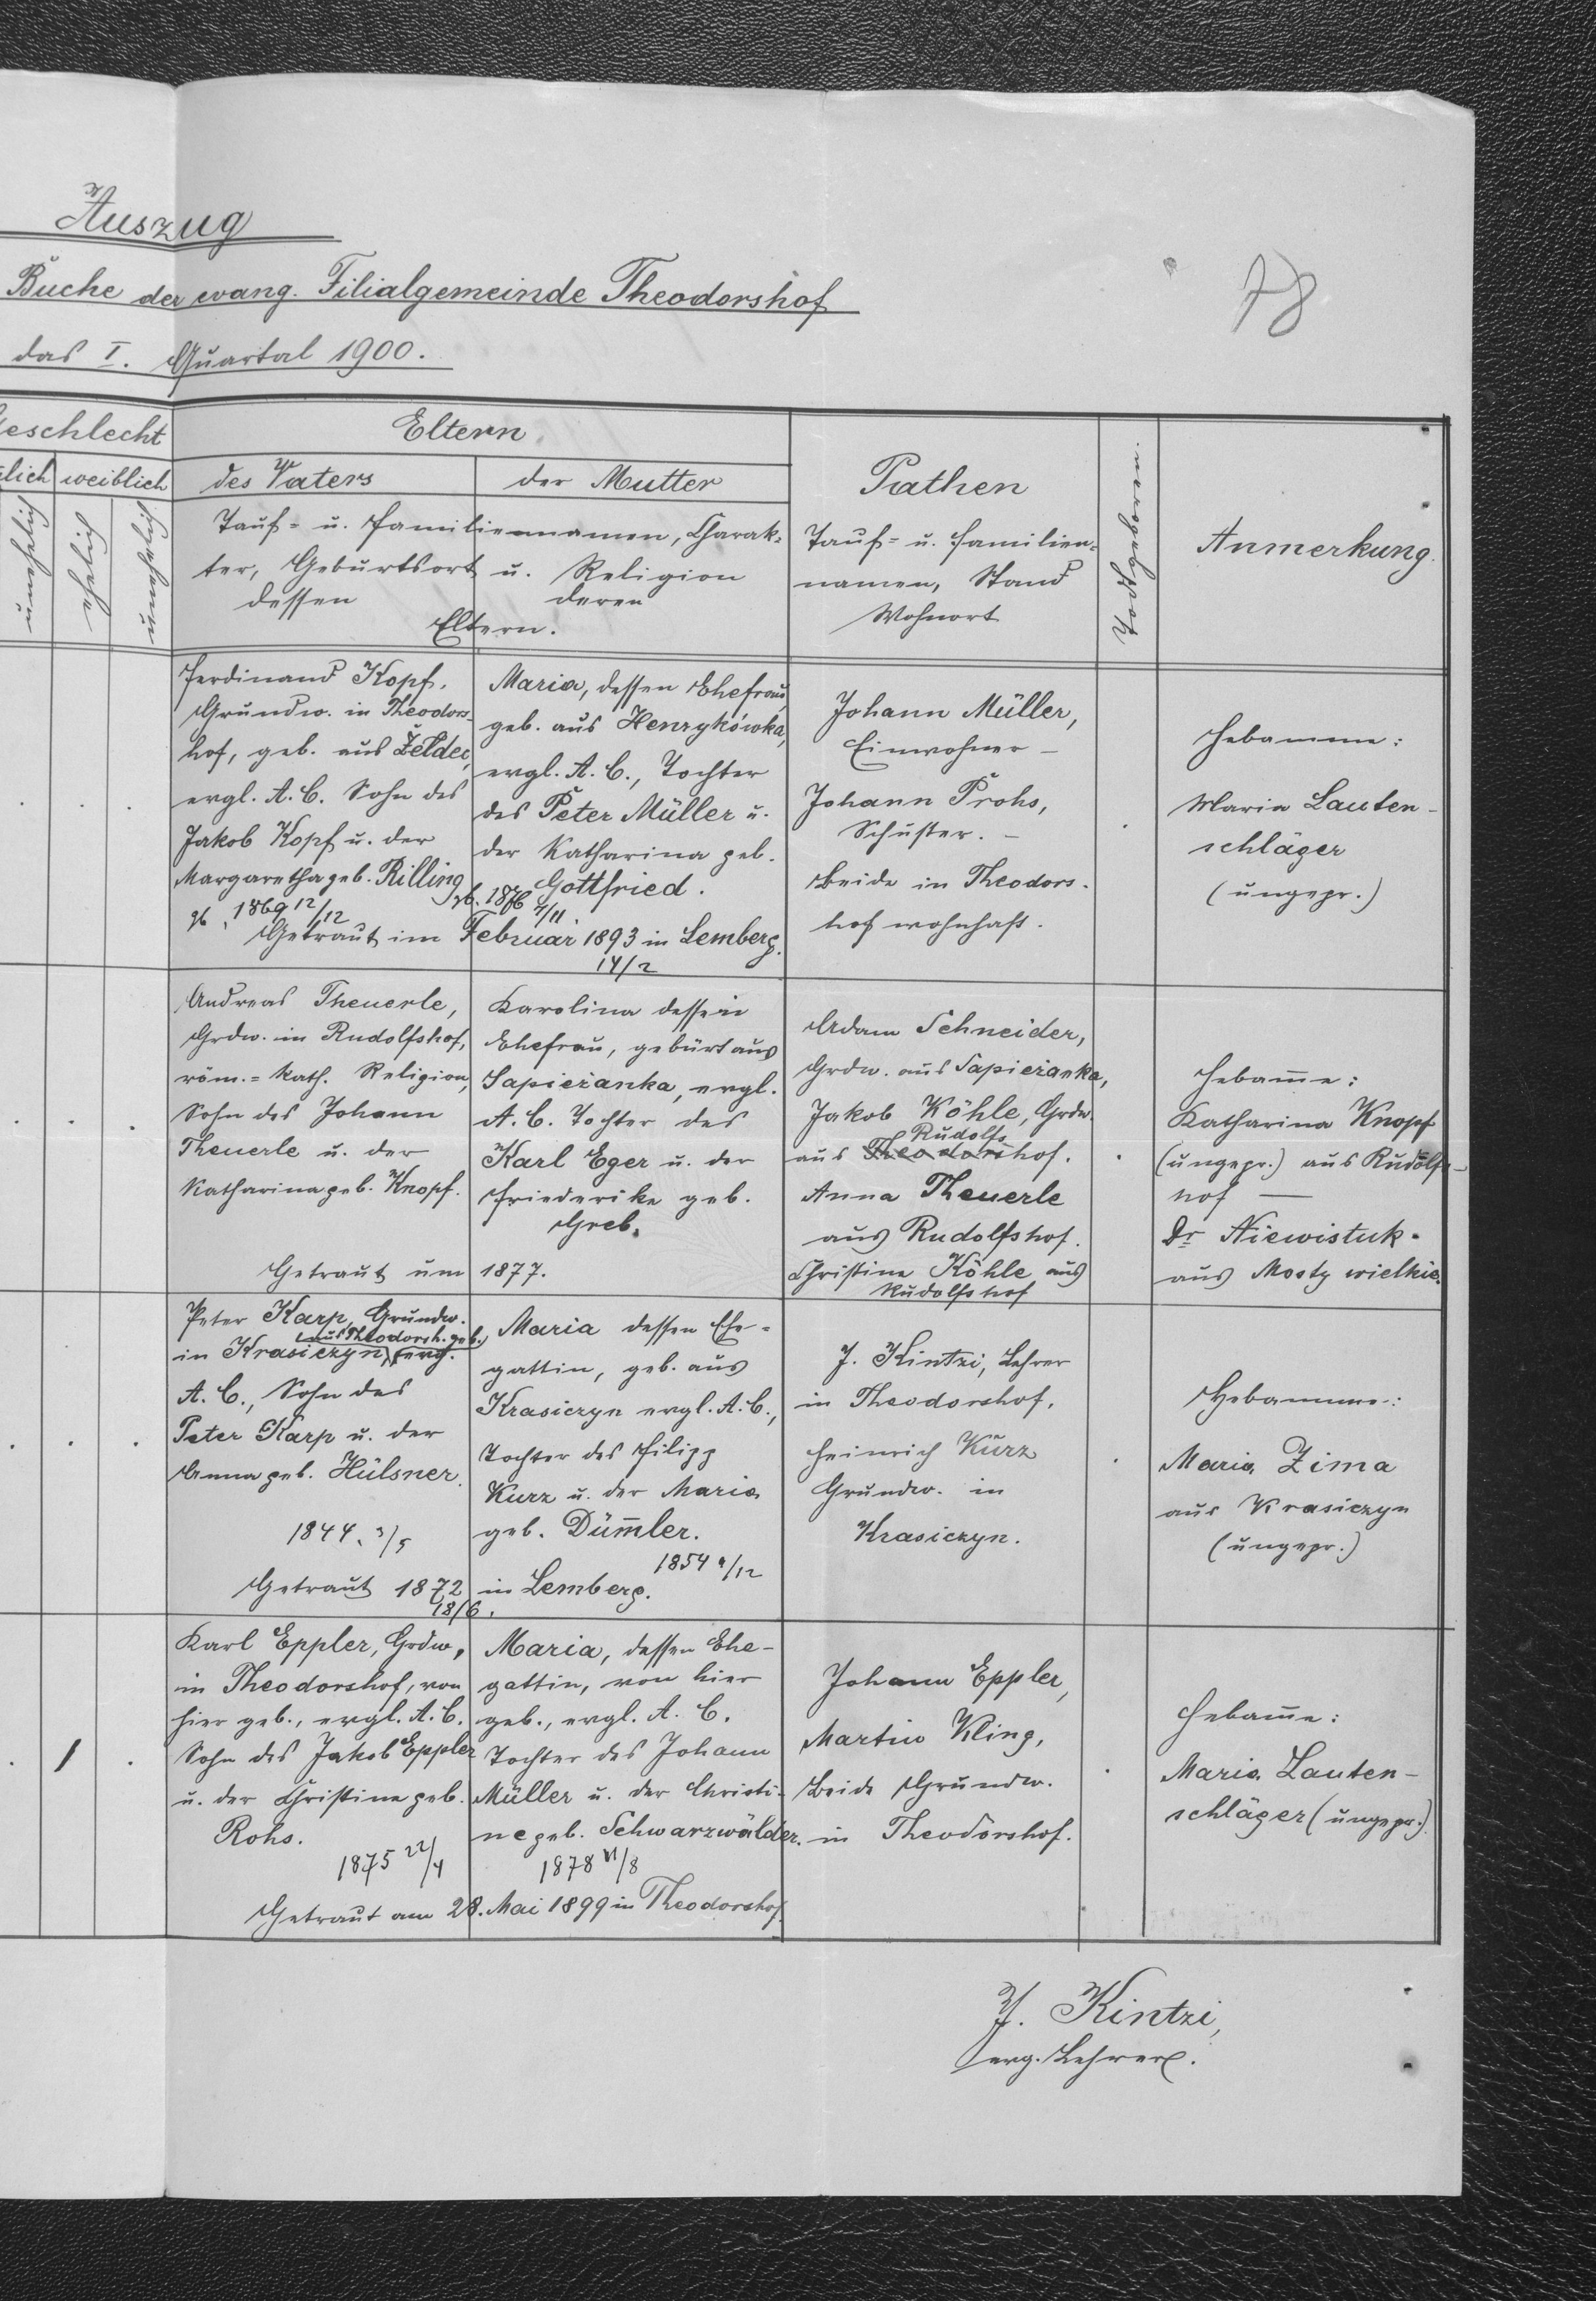 Auszug
78
Buche der evang. Filialgemeinde Theodorshof
das I. Quartal 1900.
Geschlecht
Eltern
Pathen
Todtgeboren.
Anmerkung.
weiblich
des Vaters
der Mutter
unehelich
ehelich
unehelich
Tauf- u. Familiennamen, Charak-
ter, Geburtsort u. Religion
dessen
deren
Eltern.
Tauf- u. Familien-
namen, Stand
Wohnort
Ferdinand Kopf,
Grundw. in Theodors-
hof, geb. aus Żełdec,
evgl. A. C. Sohn des
Jakob Kopf u. der
Margaretha geb. Rilling
gb. 1869 12/12
Maria, dessen Ehefrau,
geb. aus Henrykówka,
evgl. A. C., Tochter
des Peter Müller u.
der Katharina geb.
Gottfried.
gb. 1876 7/11.
Getraut im Februar 1893 in Lemberg.
14/2
Johann Müller,
Einwohner –
Johann Prohs,
Schuster. –
Beide in Theodors-
hof wohnhaft.
Hebamme:
Maria Lauten-
schläger
(ungepr.)
Andreas Theuerle,
Grdw. in Rudolfshof,
röm.-kath. Religion,
Sohn des Johann
Theuerle u. der
Katharina geb. Knopf.
Karolina dessen
Ehefrau, gebürt aus
Sapieżanka, evgl.
A. C. Tochter des
Karl Eger u. der
Friederike geb.
Greb.
Getraut um 1877.
Adam Schneider,
Grdw. aus Sapieżanka,
Jakob Köhle, Grdw.
Rudolfs
aus Theodorshof.
Anna Theuerle
aus Rudolfshof.
Christine Köhle aus
Rudolfshof
Hebamme:
Katharina Knopf
(ungepr.) aus Rudolfs-
hof –
Dr Niewistuk.
aus Mosty wielkie.
Peter Karp, Grundw.
aus Theodorsh. geb.
in Krasiczyn, evg.
A. C., Sohn des
Peter Karp u. der
Anna geb. Hülsner.
1844. 3/5
Maria dessen Ehe-
gattin, geb. aus
Krasiczyn evgl. A. C.,
Tochter des Filipp
Kurz u. der Maria
geb. Dümler.
1854 /12
Getraut 1872 in Lemberg.
18/6.
J. Kintzi, Lehrer
in Theodorshof.
Heinrich Kurz
Grundw. in
Krasiczyn.
Hebamme:
Maria Zima
aus Krasiczyn
(ungepr.)
1
Karl Eppler, Grdw.
in Theodorshof, von
hier geb., evgl. A. C.
Sohn des Jakob Eppler
u. der Christine geb.
Rohs.
1875 22/4
Maria, dessen Ehe-
gattin, von hier
geb., evgl. A. C.
Tochter des Johann
Müller u. der Christi-
ne geb. Schwarzwälder.
1878 /8
Getraut am 28. Mai 1899 in Theodorshof.
Johann Eppler,
Martin Kling,
Beide Grundw.
in Theodorshof.
Hebamme:
Maria Lauten-
schläger (ungepr.)
J. Kintzi,
evg. Lehrer.